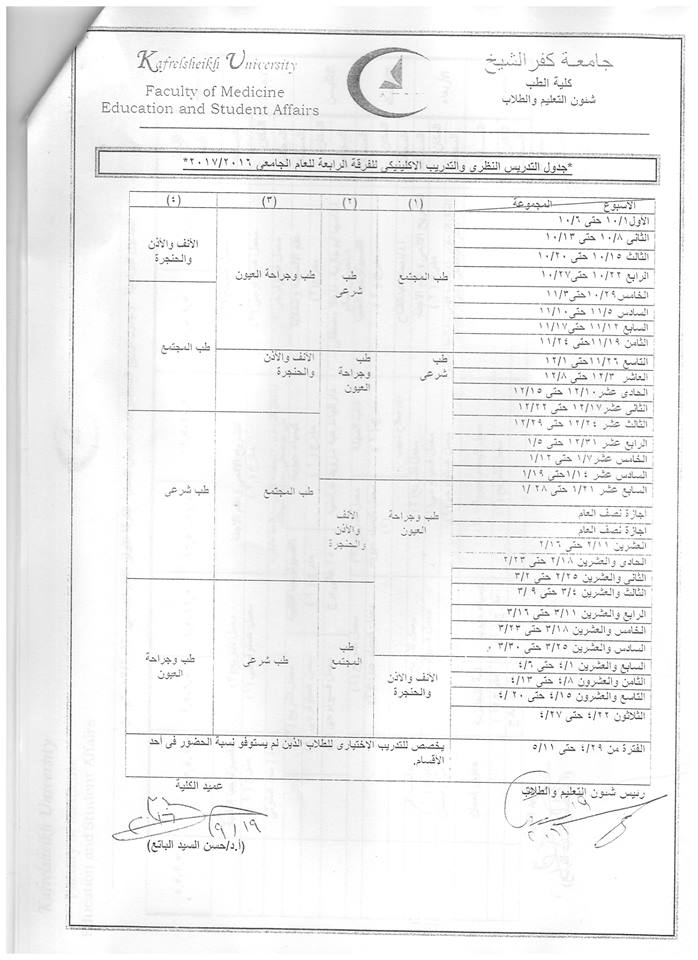 Kafrelsheikh University
Faculty of Medicine
Education and Student Affairs
جامعة كفر الشيخ
كلية الطب
شئون التعليم والطلاب
*جدول التدريس النظرى والتدريب الاكلينيكى للفرقة الرابعة للعام الجامعى ٢٠١٧/٢٠١٦*
الاسبوع المجموعة (١) (٢) (٣) (٤)
الاول ١٠/١ حتى ١٠/٦
الثانى ١٠/٨ حتى ١٠/١٣
الثالث ١٠/١٥ حتى ١٠/٢٠
الرابع ١٠/٢٢ حتى ١٠/٢٧
الخامس ١٠/٢٩ حتى ١١/٣
السادس ١١/٥ حتى ١١/١٠
السابع ١١/١٢ حتى ١١/١٧
الثامن ١١/١٩ حتى ١١/٢٤
التاسع ١١/٢٦ حتى ١٢/١
العاشر ١٢/٣ حتى ١٢/٨
الحادى عشر ١٢/١٠ حتى ١٢/١٥
الثانى عشر ١٢/١٧ حتى ١٢/٢٢
الثالث عشر ١٢/٢٤ حتى ١٢/٢٩
الرابع عشر ١٢/٣١ حتى ١/٥
الخامس عشر ١/٧ حتى ١/١٢
السادس عشر ١/١٤ حتى ١/١٩
السابع عشر ١/٢١ حتى ٢٨ /١
اجازة نصف العام
اجازة نصف العام
العشرين ٢/١١ حتى ٢/١٦
الحادى والعشرين ٢/١٨ حتى ٢/٢٣
الثانى والعشرين ٢/٢٥ حتى ٣/٢
الثالث والعشرين ٣/٤ حتى ٩ /٣
الرابع والعشرين ٣/١١ حتى ٣/١٦
الخامس والعشرين ٣/١٨ حتى ٣/٢٣
السادس والعشرين ٣/٢٥ حتى ٣/٣٠
السابع والعشرين ٤/١ حتى ٤/٦
الثامن والعشرون ٤/٨ حتى ٤/١٣
التاسع والعشرون ٤/١٥ حتى ٢٠ /٤
الثلاثون ٤/٢٢ حتى ٤/٢٧
طب المجتمع
طب
شرعى
طب وجراحة
العيون
الأنف والأذن
والحنجرة
طب
شرعى
طب
وجراحة
العيون
الأنف
والأذن
والحنجرة
طب
المجتمع
طب وجراحة العيون
الأنف والأذن
والحنجرة
طب المجتمع
طب شرعى
الأنف والأذن
والحنجرة
طب المجتمع
طب شرعى
طب وجراحة
العيون
الفترة من ٤/٢٩ حتى ٥/١١
يخصص للتدريب الاختيارى للطلاب الذين لم يستوفو نسبة الحضور فى أحد
الأقسام.
رئيس شئون التعليم والطلاب
عميد الكلية
٩/١٩
(أ.د/حسن السيد الباتع)
Kafrelsheikh University
Education and Student Affairs